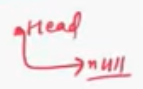 Head
null